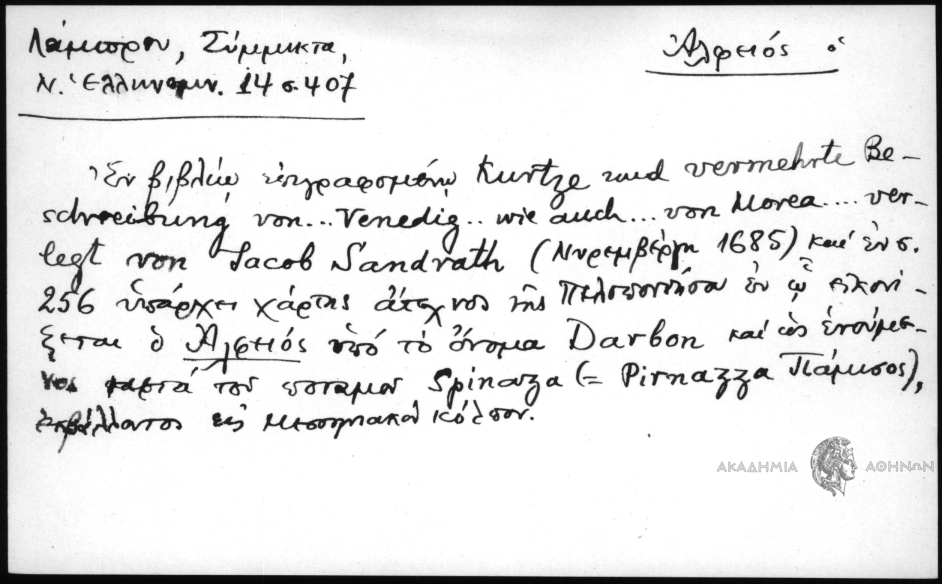 Λάμπρου, Σύμμικτα,
Ν. Ἑλληνομν. 14 σ. 407
Ἀλφειός ὁ
Ἐν βιβλίῳ ἐπιγραφομένῳ Kurtze und vermehrte Be-
schreibung von... Venedig.. wie auch... von Morea.... ver-
legt von Jacob Sandrath (Νυρεμβέργη 1685) καί ἐν σ.
256 ὑπάρχει χάρτης ἄτεχνος τῆς Πελοποννήσου ἐν ᾧ εἰκονί-
ζεται ὁ Ἀλφειός ὑπό τό ὄνομα Darbon καί ὡς ἑνούμε-
νος μετά τοῦ ποταμοῦ Spinaza (= Pirnazza Πάμισος),
ἐκβάλλοντος εἰς Μεσσηνιακόν κόλπον.
ΑΚΑΔΗΜΙΑ ΑΘΗΝΩΝ